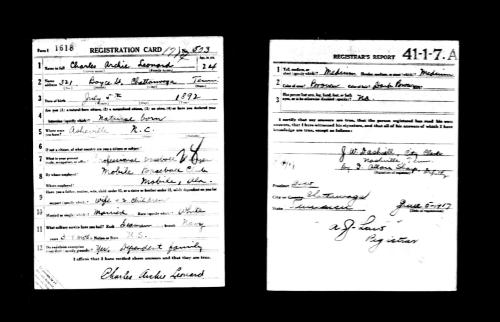 Form 1 1618 REGISTRATION CARD 573
1 Name in full Charles Archie Leonard Age, in yrs. 24
2 Home address 321 Boyce St. Chattanooga Tenn
3 Date of birth July 5th 1892
4 Are you (1) a natural-born citizen, (2) a naturalized citizen, (3) an alien, (4) or have you declared your intention (specify which)? Natural born
5 Where were you born? Asheville N.C.
6 If not a citizen, of what country are you a citizen or subject?
7 What is your present trade, occupation, or office? Professional Baseball
8 By whom employed? Mobile Baseball Club
Where employed? Mobile, Ala.
9 Have you a father, mother, wife, child under 12, or a sister or brother under 12, solely dependent on you for support (specify which)? Wife & children
10 Married or single (which)? Married Race (specify which)? White
11 What military service have you had? Rank Seaman branch Navy
years Nation or State U.S.
12 Do you claim exemption from draft (specify grounds)? Yes, Dependent family
I affirm that I have verified above answers and that they are true.
Charles Archie Leonard
REGISTRAR'S REPORT 41-1-7. A
1 Tall, medium, or short (specify which)? Medium Slender, medium, or stout (which)? Medium
2 Color of eyes? Brown Color of hair? Dark Brown
3 Has person lost arm, leg, hand, foot, or both eyes, or is he otherwise disabled (specify)? No.
I certify that my answers are true, that the person registered has read his own answers, that I have witnessed his signature, and that all of his answers of which I have knowledge are true, except as follows:
Nashville Tenn
Precinct
City or County Chattanooga
State Tennessee June 5-1917
Registrar